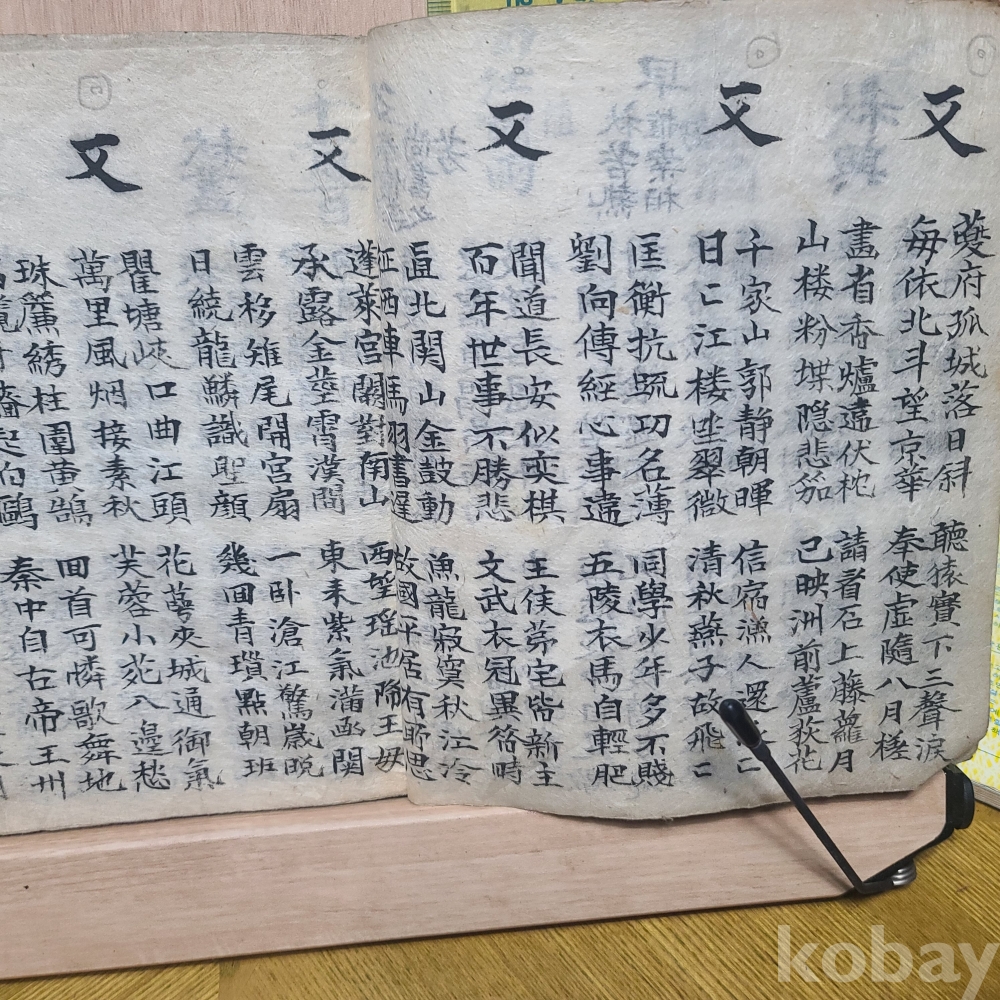 又
夔府孤城落日斜
每依北斗望京華
聽猿實下三聲淚
奉使虛隨八月槎
畫省香爐違伏枕
山楼粉堞隐悲笳
請看石上藤蘿月
已映洲前蘆荻花
又
千家山郭静朝暉
日〻江楼坐翠微
信宿漁人還〻
清秋燕子故飛〻
匡衡抗疏功名薄
劉向傳經心事違
同學少年多不賤
五陵衣馬自輕肥
又
聞道長安似奕棋
百年世事不勝悲
王侯苐宅皆新主
文武衣冠異昔時
直北関山金鼓動
征西車馬羽書遲
漁龍寂寞秋江冷
故國平居有所思
又
蓬萊宮闕對南山
承露金莖霄漢間
西望瑶池降王母
東来紫氣滿函関
雲移雉尾開宮扇
日繞龍鱗識聖顔
一卧滄江驚歲晩
幾回青瑣點朝班
又
瞿塘峽口曲江頭
萬里風烟接素秋
花萼夾城通御氣
芙蓉小苑入邉愁
珠簾綉柱圍黄鵠
纜牙檣起白鷗
回首可憐歌舞地
秦中自古帝王州
kobay